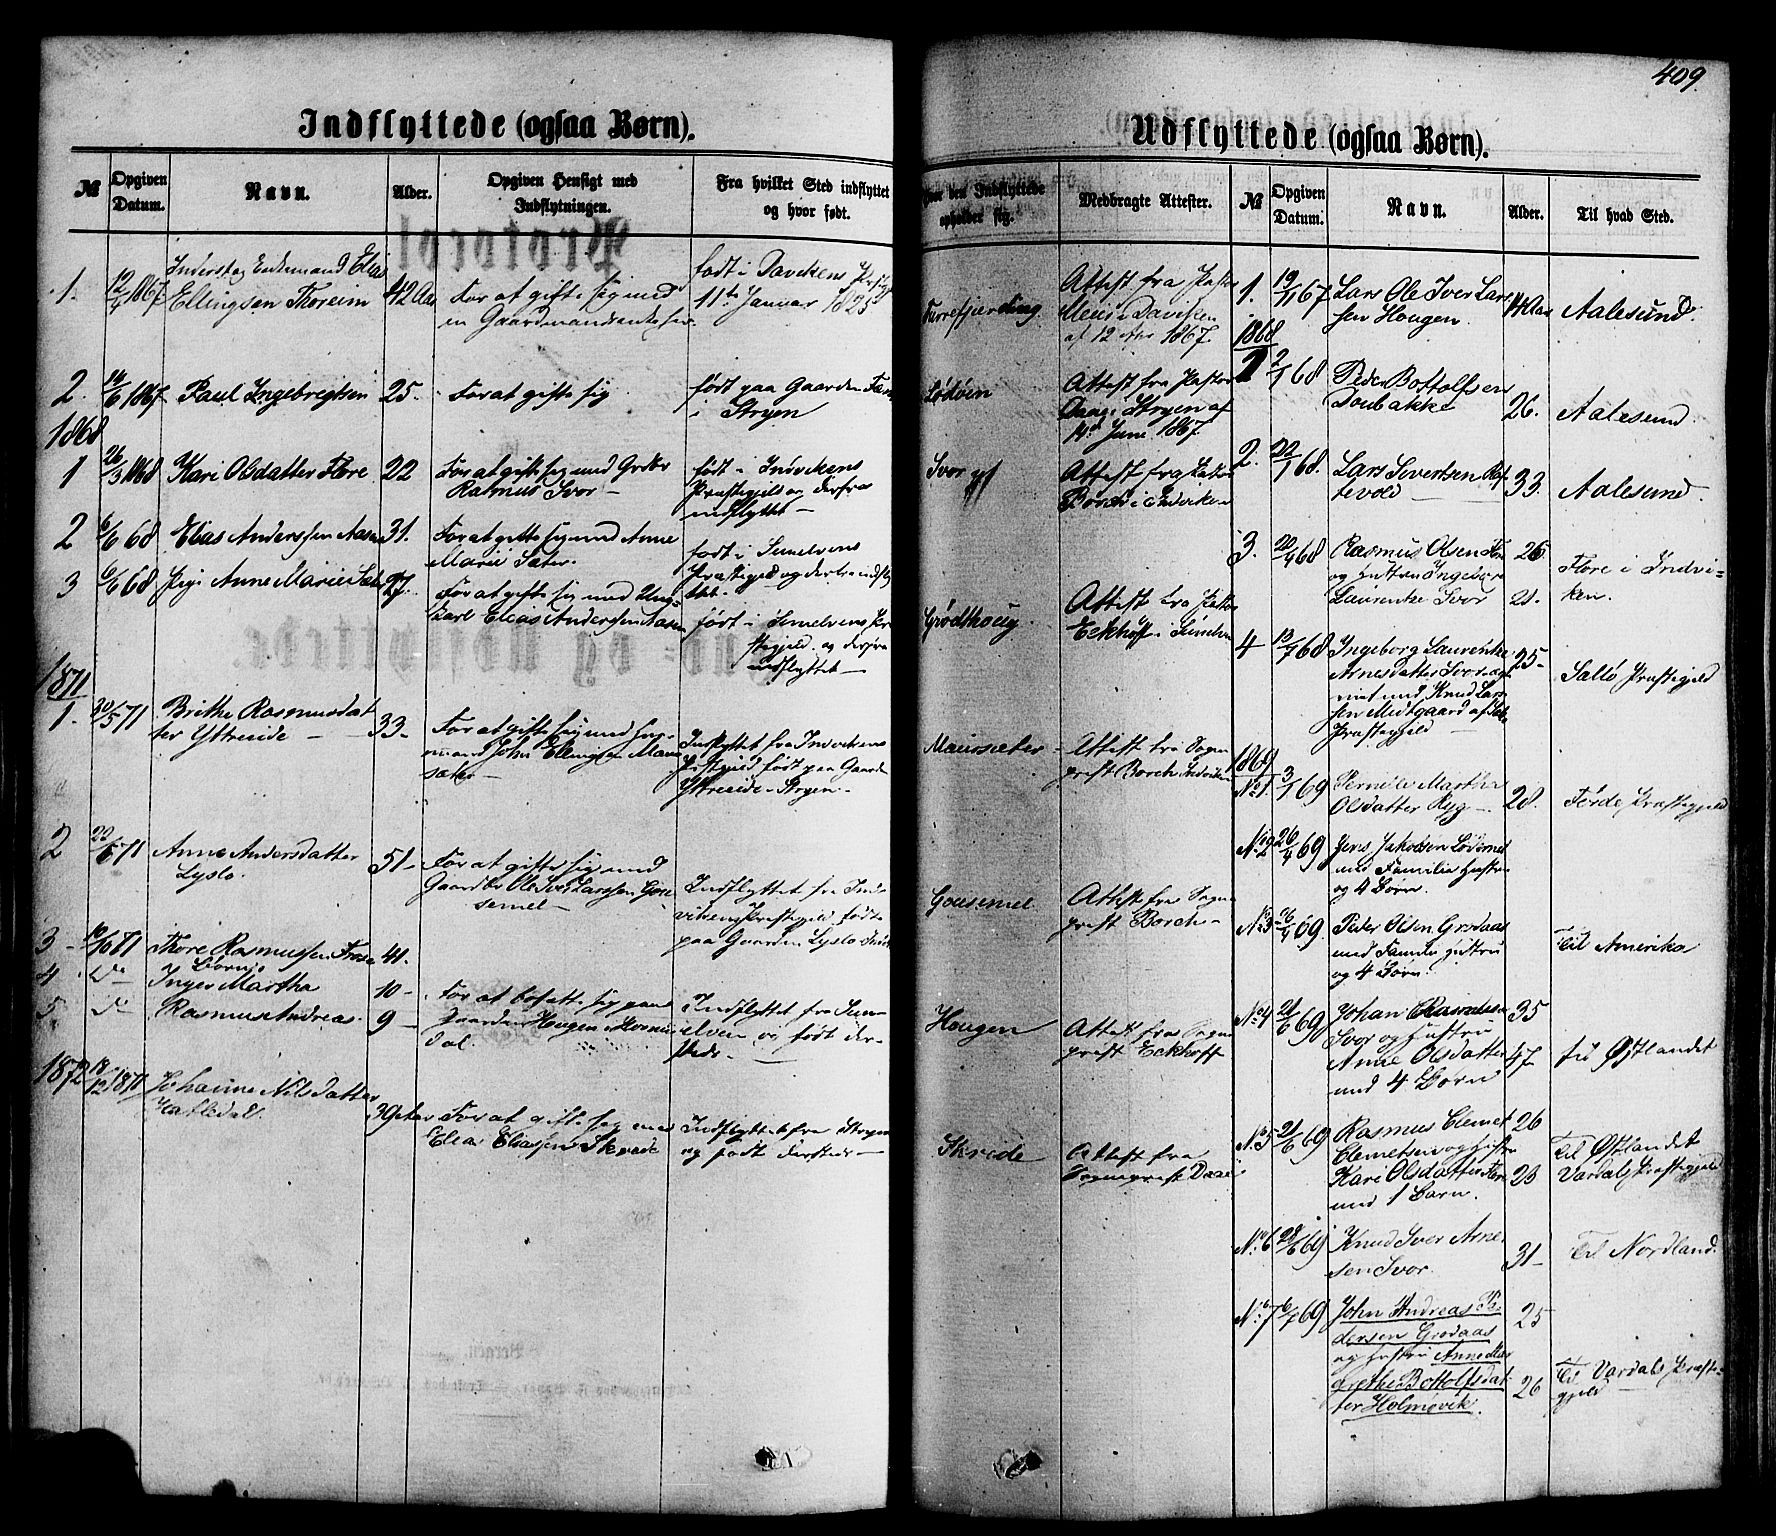 409.
Indflyttede (ogsaa Børn).
№
Opgiven Datum.
Navn.
Alder.
Opgiven Hensigt med
Indflytningen.
Fra hvilket Sted indflyttet
og hvor født.
Hvor den Indflyttede
opholder sig.
Medbragte Attester.
1.
12/4 1867
Enkemand Elias
Ellingsen Thoreim
42 Aar
For at gifte sig med
en Gaardmandsenke
født i Davikens
11te Januar 1825
Attest fra Pastor
Daviken
af 12 1867.
2.
14/6 1867
Paul Ingebregtsen
25.
For at gifte sig
født paa Gaarden
i Stryen
Lødøen
Attest fra Pastor
Daae i Stryen af
14de Juni 1867
1868
1
26/3 1868
Kari Olsdatter Flore
22
For at gifte sig med Gaardbr
Rasmus Svor —
født i Indvikens
Præstegjeld og derfra
indflyttet —
Svor
Attest fra Pastor
Borch i Indviken
2
6/6 68
Elias Anderssen Aasen
31.
For at gifte sig med Anne
Marie Sæter.
født i Sunelvens
Præstegjeld og derfra indfly
ttet.
3
6/6 68
Pige Anne Marie Sæter
27.
For at gifte sig med Ung-
karl Elias Anderssen Aasen
født i Sunelvens Præ
stegjeld og derfra
indflyttet —
Grødthoug
Attest fra Pastor
Eckhoff i Sunelven
1871
1.
30/5 71
Brithe Rasmusdat
ter Yttreeide —
33-
For at gifte sig med
John Ellingsen Maur
sæter —
Indflyttet fra Indvikens
Præstegjeld født paa Gaarden
Yttreeide - Stryen -
Maursæter
Attest fra Sogne
prest Borch Indviken
2
22/6 71
Anne Andersdatter
Lyslo.
51-
For at gifte sig med
Gaardbr Ole Iver Larssen Gous
semel —
Indflyttet fra Ind
vikens Præstegjeld født
paa Gaarden Lyslo
Gousemel
Attest fra Sogne
prest Borch -
3 -
10/10 71
Thore Rasmussen
41.
Børn:
4 -
Do
Inger Martha
10 -
For at bosætte sig paa
Gaarden Hougen i Hornin
dal.
Indflyttet fra Sun-
elven og født der-
steds -
Hougen
Attest fra Sogne
prest Eckhoff
5
Do
Rasmus Andreas.
9 -
1872
18/12 1871
Johanne Nilsdatter
Hatledal.
39 Aar
For at gifte sig med
Elias Eliassen Skrede
Indflyttet fra Stryen
og født dersteds -
Skrede
Attest fra
Sogneprest Daae
Udflyttede (ogsaa Børn).
№
Opgiven Datum.
Navn.
Alder.
Til hvad Sted.
1.
Lars Ole Iver Lars
sen Hougen.
14 Aar
Aalesund.
1868
2/1 68
Peder Bottolfsen
26.
Aalesund.
2.
22/1 68.
Lars Sivertsen Raf
tevold —
33.
Aalesund.
3.
20/4 68
Rasmus Olsen Flore
og Hustru Ingeborg
Laurentze Svor
26
21.
Flore i Indvi=
ken.
4
10/7 68
Ingeborg Laurentze
Arnesdatter Svor
med Knud Lars
sen Midtgaard af
Præstegjeld
25-
Præstegjeld
1869
No 1.
3/1 69
Pernele Martha
Olsdatter Ryg —
28.
Førde Præstegjeld
No 2
26/4 69
Jens Jakobsen Lødemel
med Familie Hustru
og 4 Børn.
No 3
26/4 69.
Peder Olsen Grodaas
med Familie Hustru
og 4 Børn.
Til Amerika
No 4
21/6 69
Johan Rasmussen
Svor og Hustru
Anne Olsdatter
med 4 Børn
35
47.
til Østlandet
No 5
21/6 69
Rasmus Clemet
Clemetsen og Hustru
Kari Olsdatter
med 1 Barn.
26
23
Til Østlandet
Vardals Præstegjeld
No 6
28/6 69
Knud Iver Arne
sen Svor.
31-
Til Nordland.
No 7
6/7 69
John Andreas Pe-
dersen Grodaas
og Hustru Anne Mar
grethe Bottolfsdat
ter Holmøvik.
25
26
Til Vardals Præste-
gjeld —